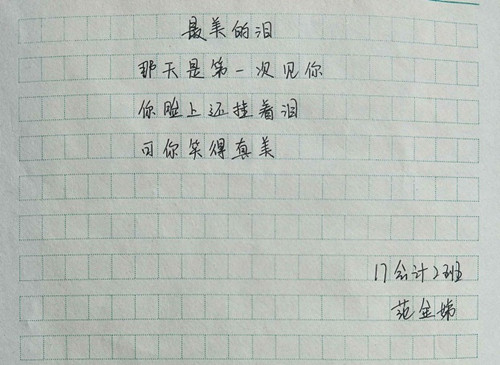 最美的泪
那天是第一次见你
你脸上还挂着泪
可你笑得真美
17会计2班
范金娣